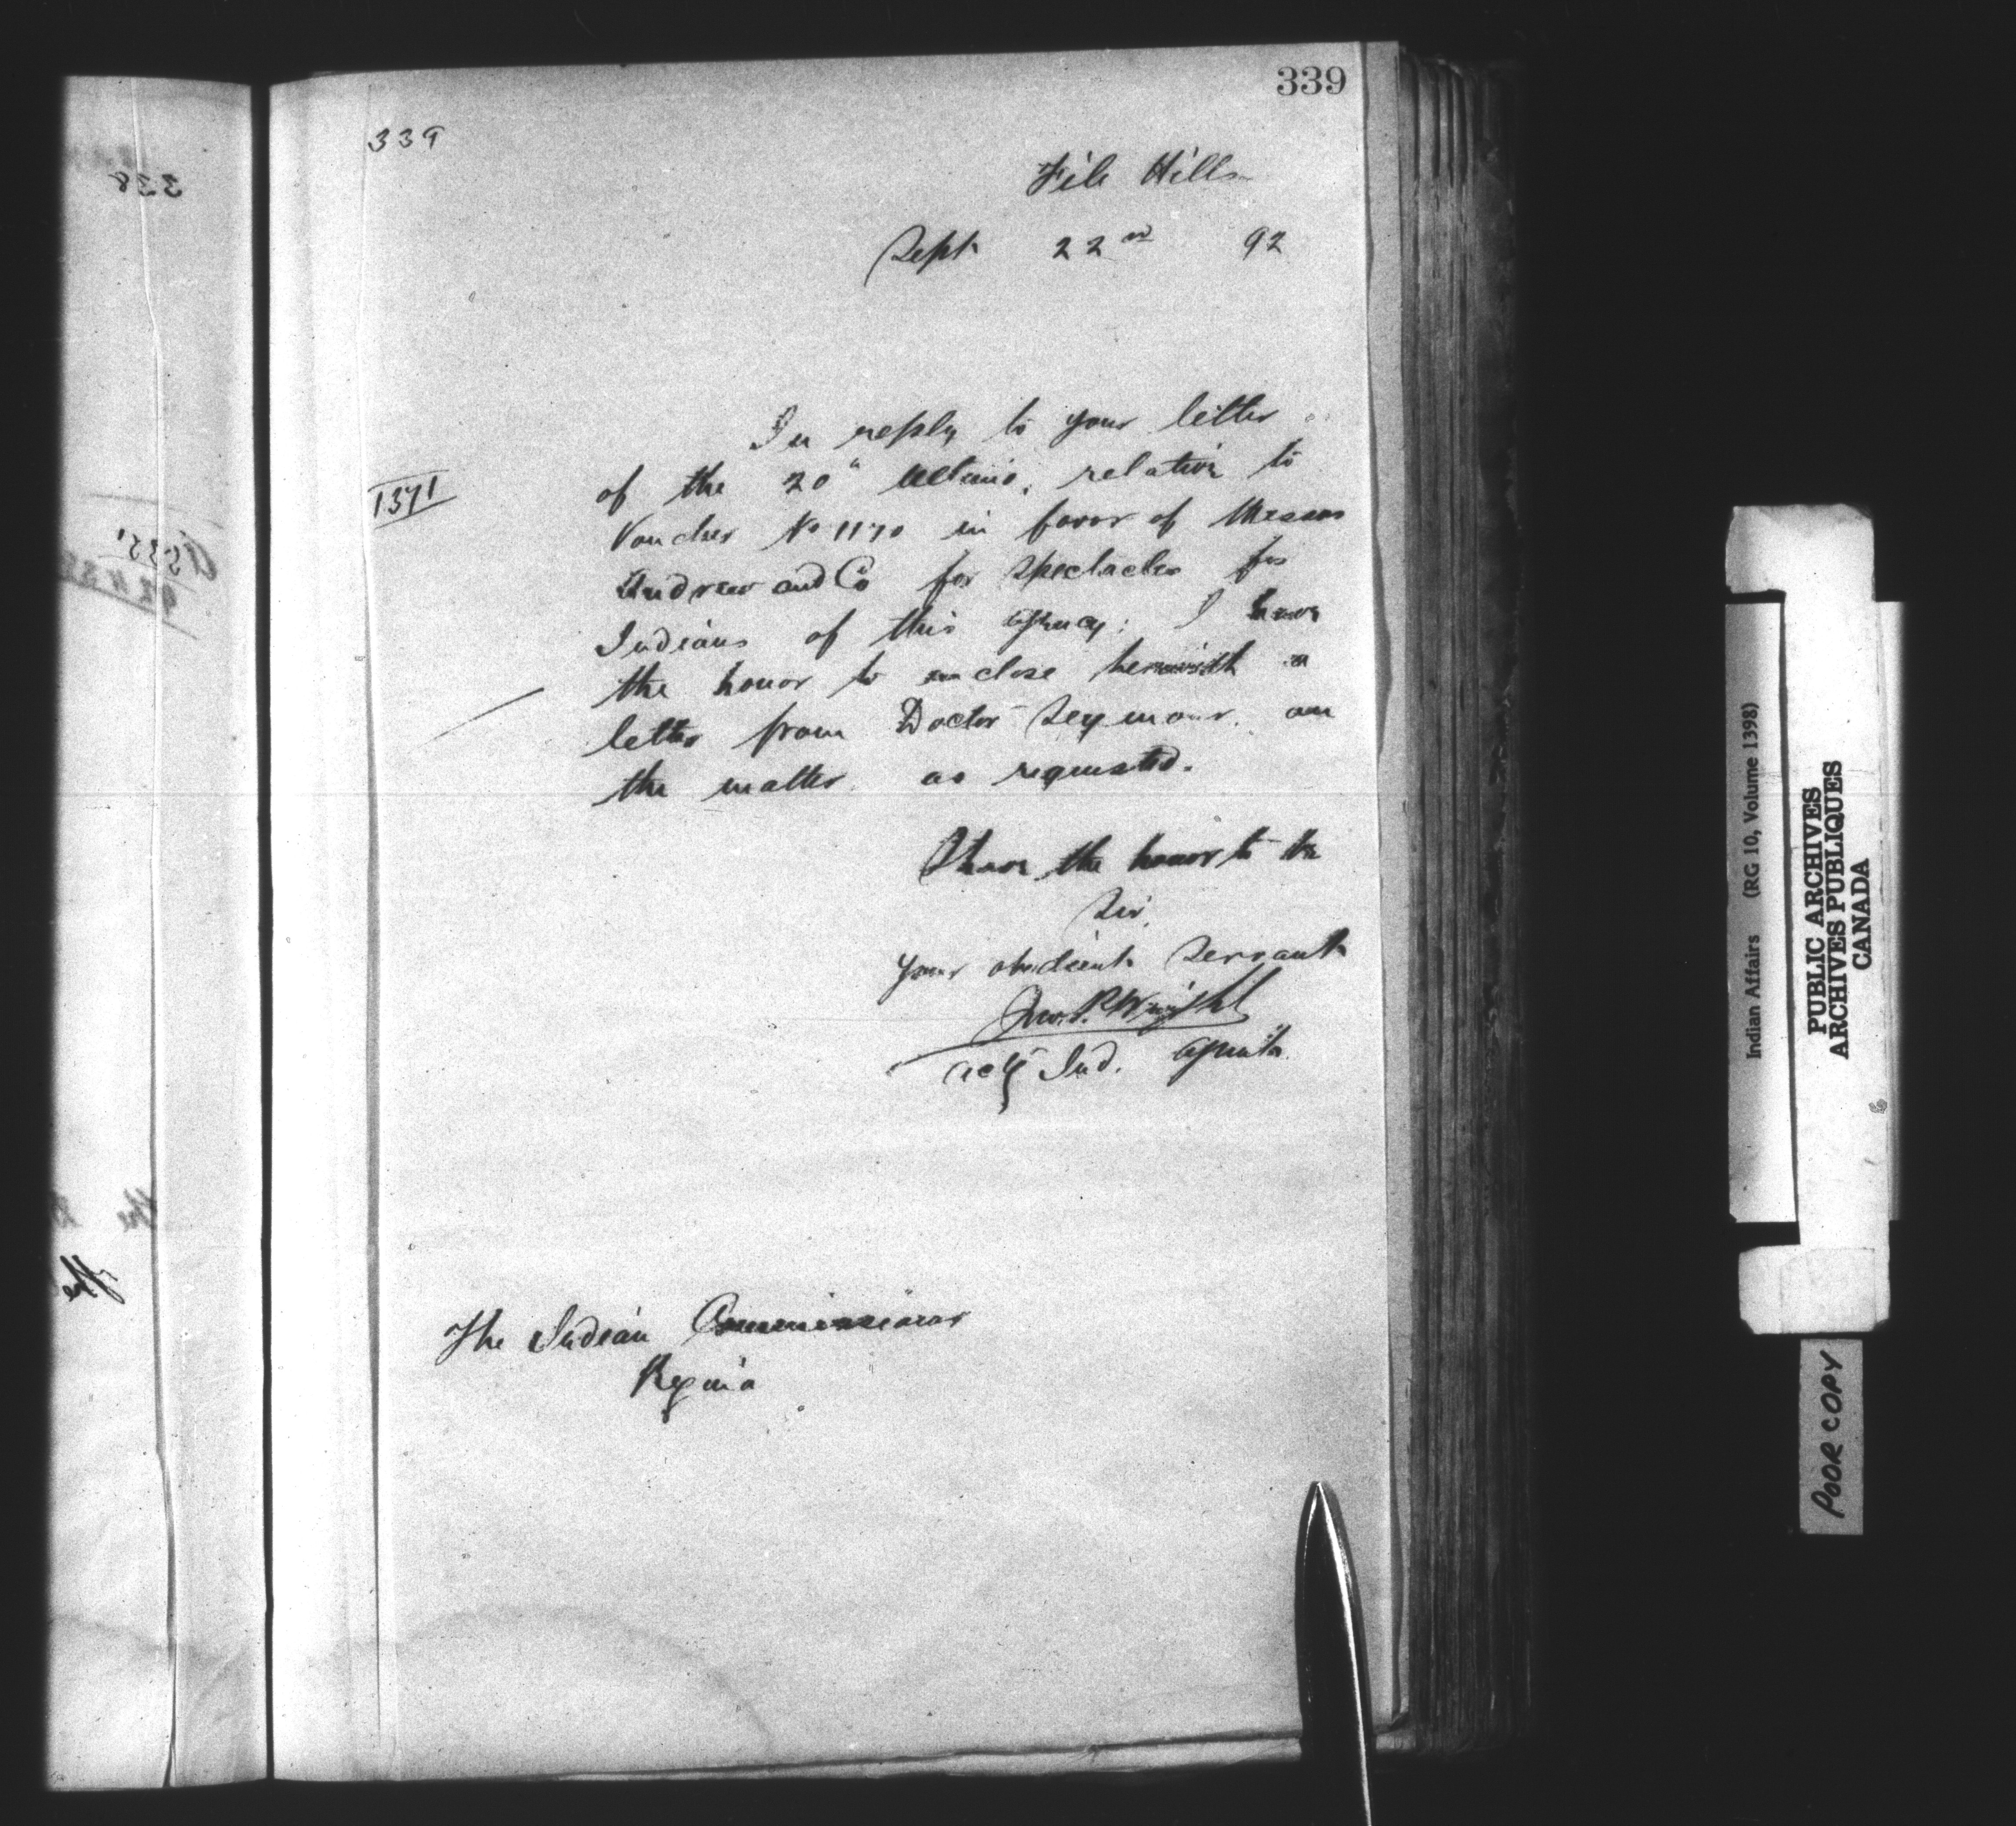 339
339
File Hills
Sept 22nd 92
In reply to your letter
1371
of the 20" ultimo, relative to
Voucher No 1170 in favor of Messrs
Andrew and Co for spectacles for
Indians of this agency; I have
the honor to enclose herewith a
letter from Doctor Seymour, on
the matter as requested.
I have the honor to be
Sir,
Your obedient Servant
Jno. P. Wright
actg Ind. Agent
The Indian Commissioner
Regina
338
the
The
Indian Affairs (RG 10, Volume 1398)
PUBLIC ARCHIVES
ARCHIVES PUBLIQUES
CANADA
POOR COPY